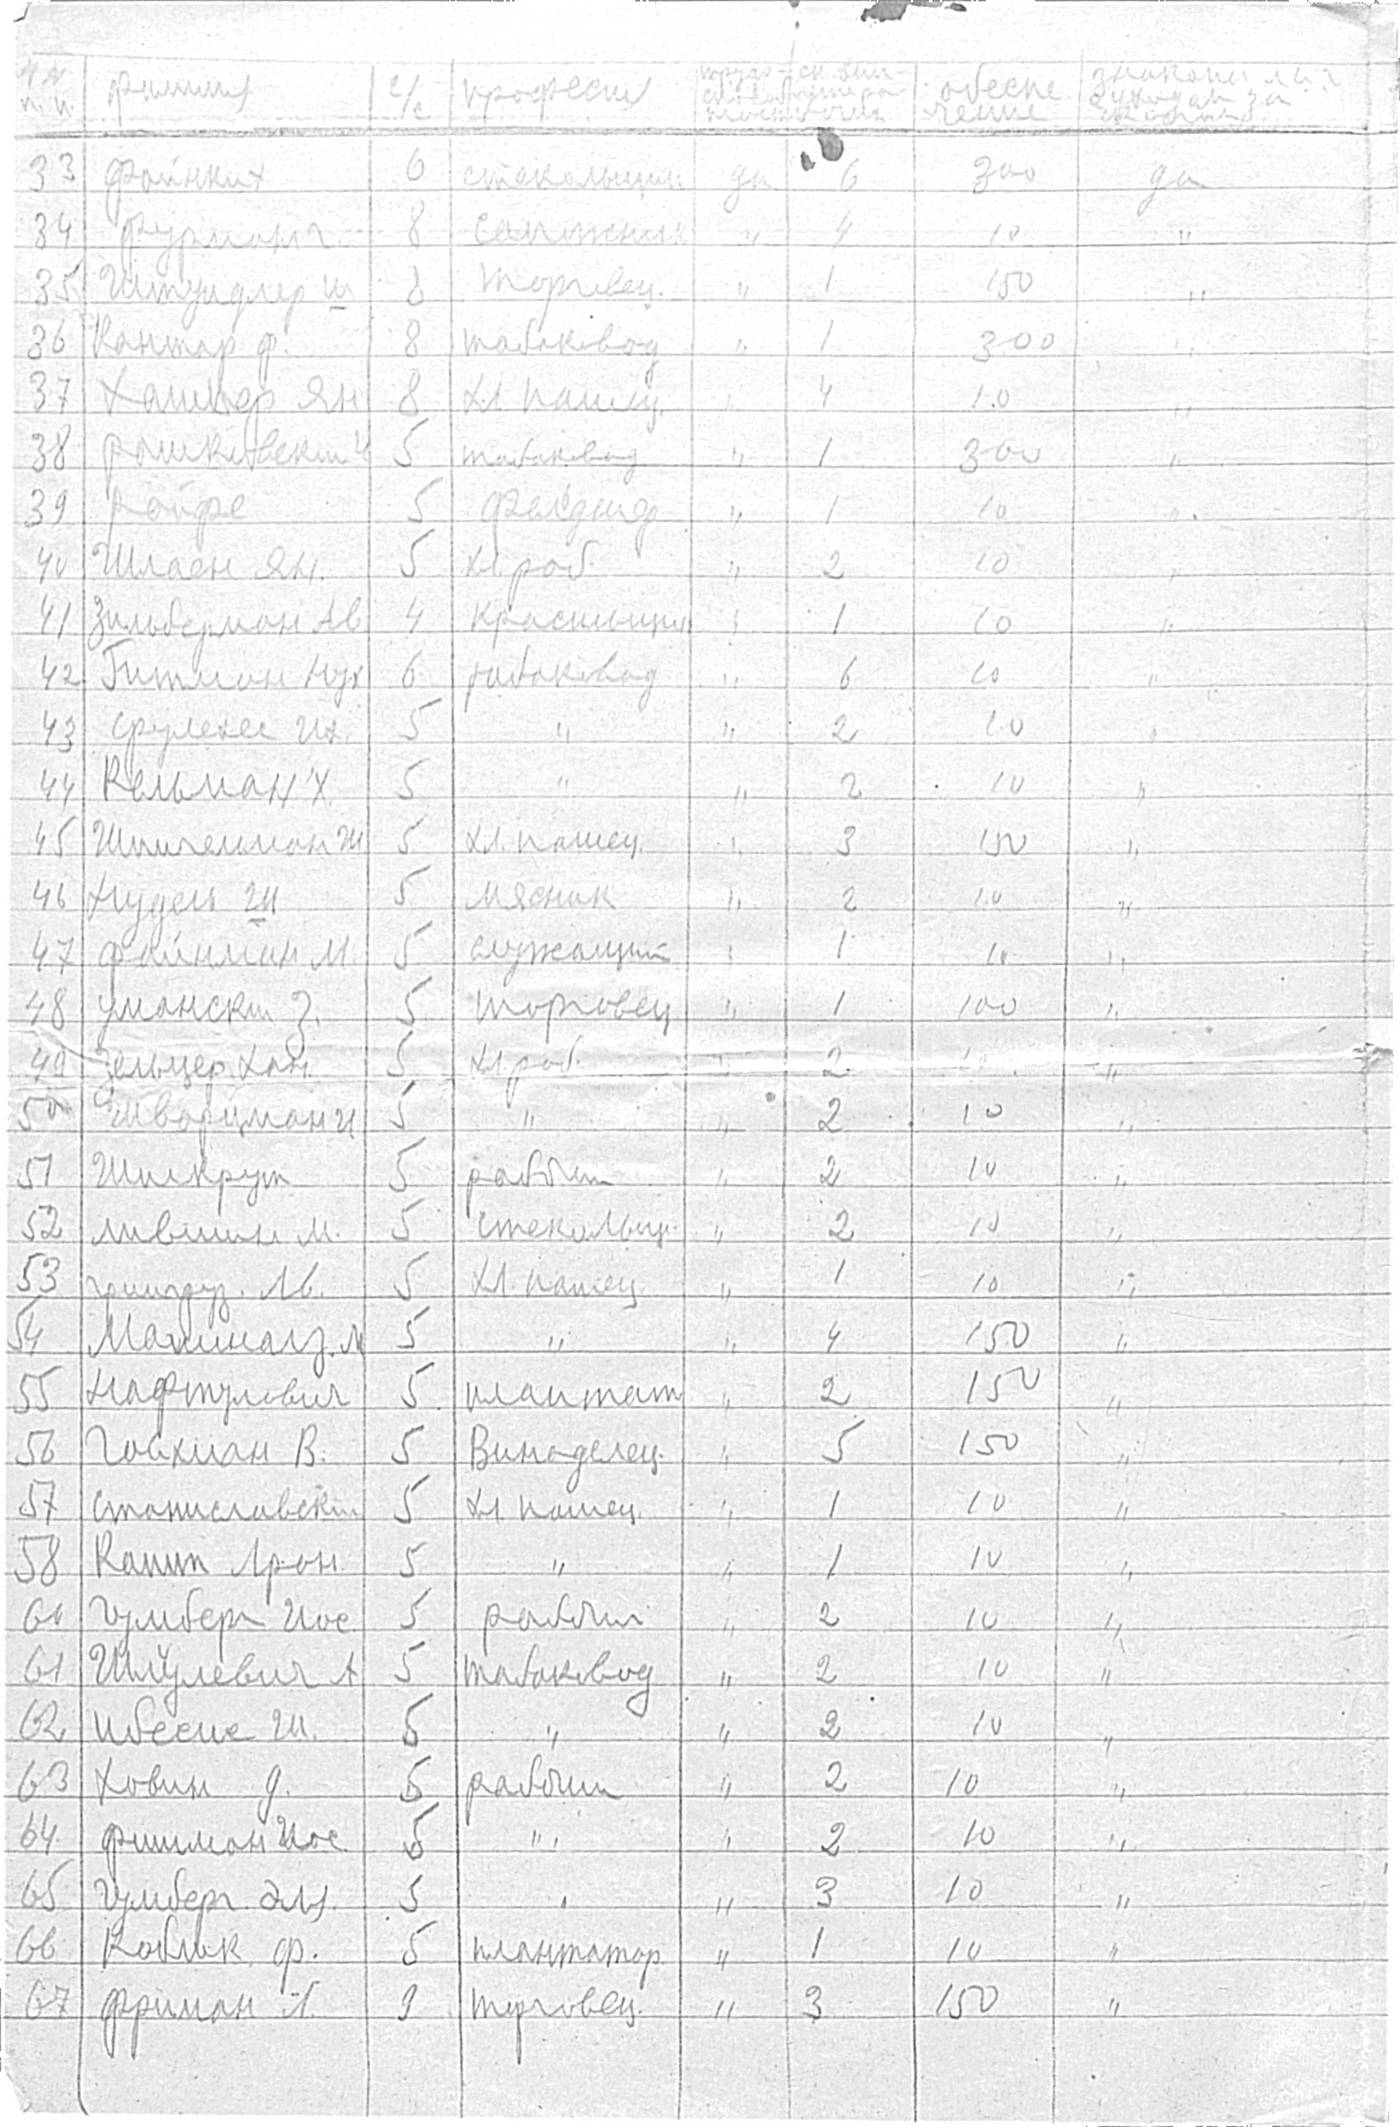 № № п. п. фамилия ч/с профессия обеспечение
33 Файнких 6 стекольщик да 6 300 да
34 Фурман 8 сапожник " 4 10 "
35 Штундлер Ш 8 Торговец. " 1 150 "
36 Кантор Ф. 8 табаковод " 1 300 "
37 Хаимпер Ян 8 хл. пашец. " 4 10 "
38 Рашковский 5 табаковод " 1 300 "
39 Ройфе 5 " 1 10 "
40 Шлаен Ян. 5 хл. роб. " 2 10 "
41 Зильберман Ав 4 красильщик " 1 10 "
42 Гитман Нух 6 табаковод " 6 10 "
43 Срулевес Их. 5 " " 2 10 "
44 Кельман Х. 5 " " 2 10 "
45 5 хл. пашец. " 3 150 "
46 Нудель Ш 5 мясник " 2 10 "
47 Файнман М. 5 служащий " 1 10 "
48 Умански З. 5 торговец " 1 100 "
49 Зельцер Хан. 5 хл. роб. " 2 "
50 Шварцман И 5 " " 2 10 "
51 Шилкрут 5 рабочи " 2 10 "
52 Лившин М. 5 стекольщ. " 2 10 "
53 5 хл. пашец. " 1 10 "
54 5 " " 4 150 "
55 Нафтулович 5 плантат " 2 150 "
56 Гойхман В. 5 Винаделец. " 5 150 "
57 Станиславски 5 хл. пашец. " 1 10 "
58 Капит Арон 5 " " 1 10 "
60 Гумберг Иос 5 рабочи " 2 10 "
61 Шмулевич А 5 табаковод " 2 10 "
62 Ш. 5 " " 2 10 "
63 Ховин Д. 5 рабочи " 2 10 "
64 Фишман Иос 5 " " 2 10 "
65 Гумберг Эля. 5 " " 3 10 "
66 Коблик Ф. 5 плантатор " 1 10 "
67 Фриман Л. 9 торговец. " 3 150 "